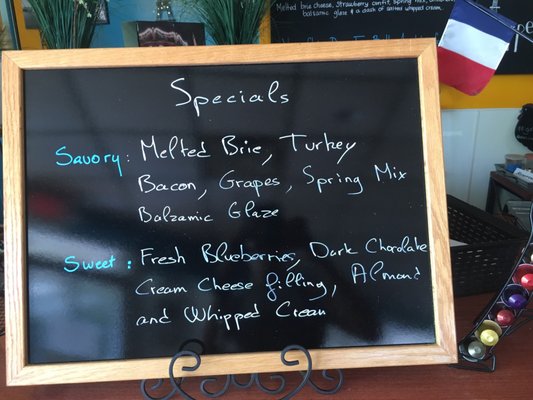 Melted brie cheese, Strawberry confit, Spring mix,
balsamic glaze & a dash of salted whipped cream
Specials
Savory: Melted Brie, Turkey
Bacon, Grapes, Spring Mix
Balzamic Glaze
Sweet: Fresh Blueberries, Dark Chocolate
Cream Cheese filling, Almond
and Whipped Cream